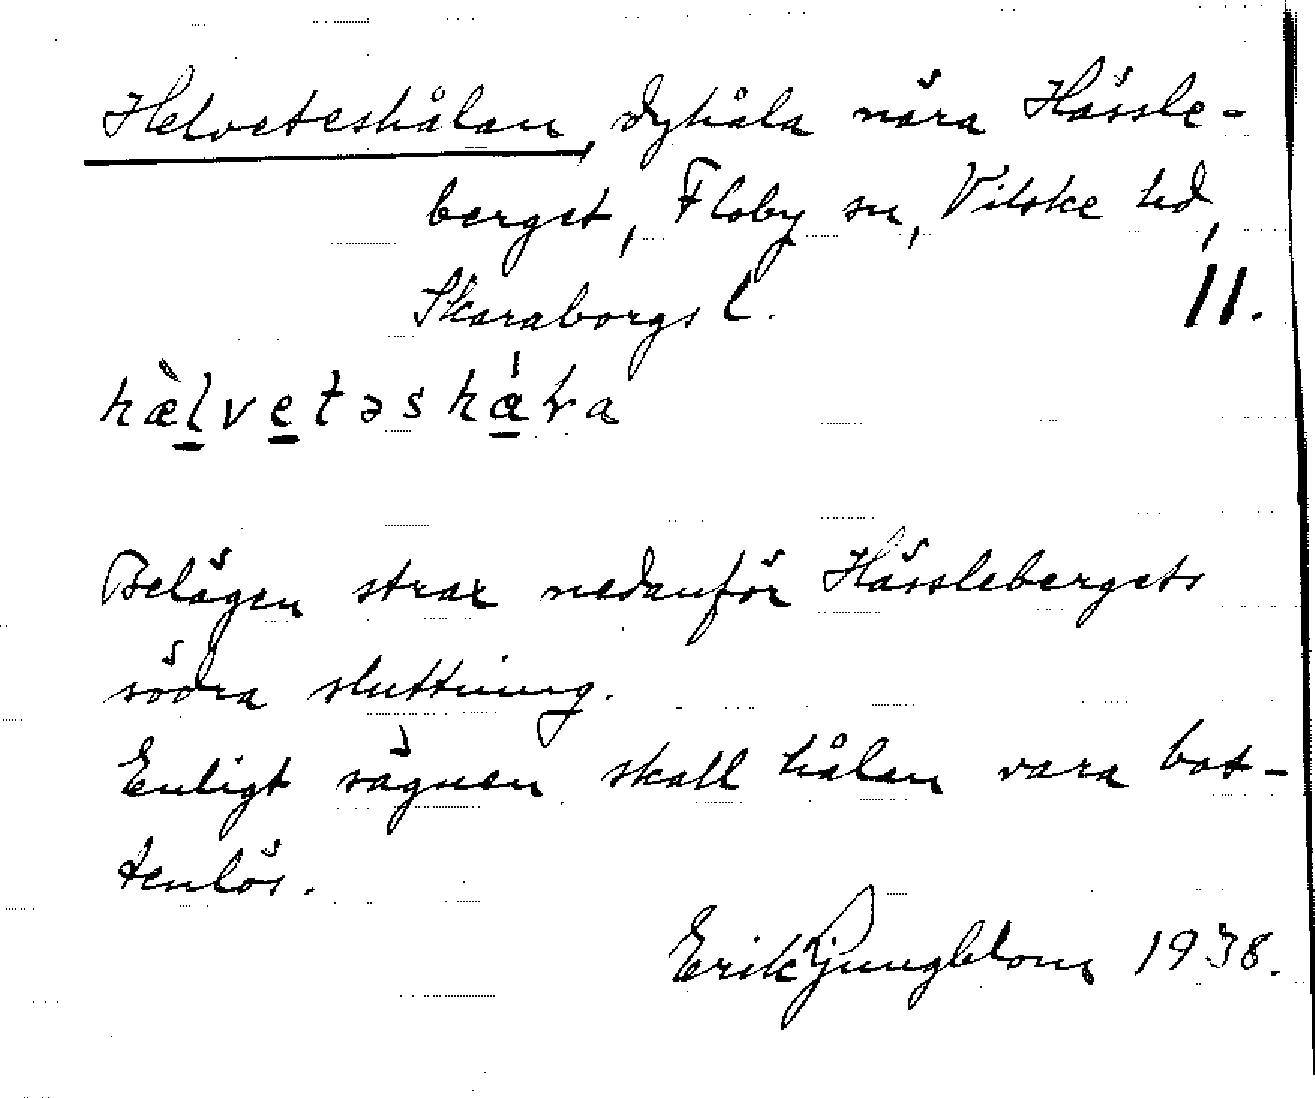 Helveteshålan, dyhåla nära Hässle-
berget, Floby sn, Vilske hd,
Skaraborgs l. 11.
hæ̀lvetəsháɫa
Belägen strax nedanför Hässlebergets
södra sluttning.
Enligt sägnen skall hålan vara bot-
tenlös.
Erik Ljungblom 1938.